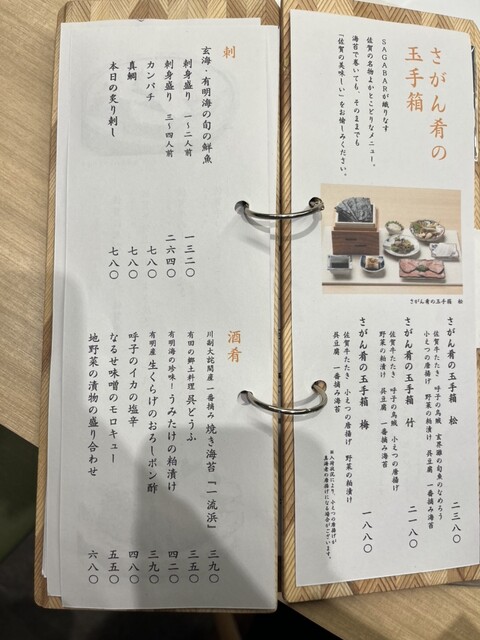 さがん肴の
玉手箱
SAGABARが織りなす
佐賀の名物よかとこどりなメニュー。
海苔で巻いても、そのままでも
「佐賀の美味しい」をお愉しみください。
さがん肴の玉手箱 松
さがん肴の玉手箱 松 二三八〇
佐賀牛たたき 呼子の烏賊 玄界灘の旬魚のなめろう
小えつの唐揚げ 野菜の粕漬け 呉豆腐 一番摘み海苔
さがん肴の玉手箱 竹 二一八〇
佐賀牛たたき 呼子の烏賊 小えつの唐揚げ
野菜の粕漬け 呉豆腐 一番摘み海苔
さがん肴の玉手箱 梅 一八八〇
佐賀牛たたき 小えつの唐揚げ 野菜の粕漬け
呉豆腐 一番摘み海苔
※入荷状況により、小えつの唐揚げが
真海老の唐揚げになる場合がございます。
刺
玄海・有明海の旬の鮮魚
刺身盛り 一〜二人前 一三二〇
刺身盛り 三〜四人前 二六四〇
カンパチ 七八〇
真鯛 七八〇
本日の炙り刺し 七八〇
酒肴
川副大詫間産一番摘み焼き海苔「一流浜」 三九〇
有田の郷土料理 呉どうふ 三五〇
有明海の珍味！うみたけの粕漬け 四二〇
有明産 生くらげのおろしポン酢 三九〇
呼子のイカの塩辛 四八〇
なるせ味噌のモロキュー 五五〇
地野菜の漬物の盛り合わせ 六八〇